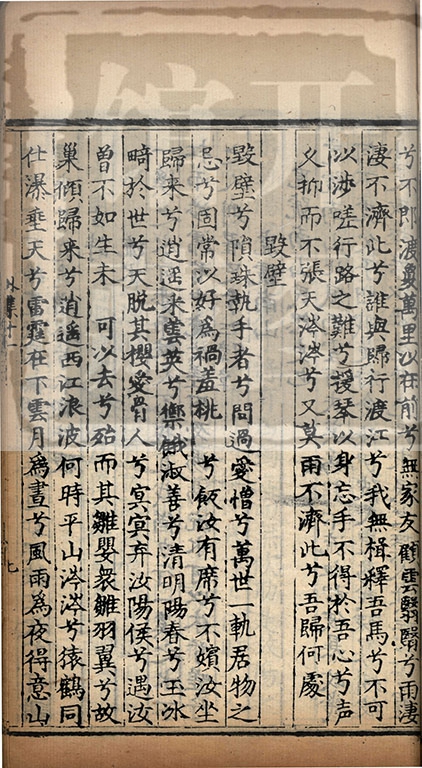 兮不即渡曼萬里以在前兮無家友顧雲翳翳兮雨淒
淒不濟此兮誰與歸行渡江兮我無楫釋吾馬兮不可
以涉嗟行路之難兮援琴以身忘手不得於吾心兮声
久抑而不張天涔涔兮又莫雨不濟此兮吾歸何處
毀璧
毀璧兮隕珠執手者兮問過愛憎兮萬世一軌居物之
忌兮固常以好為禍羞桃 兮飯汝有席兮不嬪汝坐
歸来兮逍遥采雲英兮禦餓淑善兮清明陽春兮玉冰
畸於世兮天脫其攖愛骨人兮冥冥弃汝陽侯兮遇汝
曾不如生未 可以去兮殆而其雛嬰衆雛羽翼兮故
巢傾歸来兮逍遥西江浪波何時平山涔涔兮猿鶴同
仕瀑垂天兮雷霆在下雲月為晝兮風雨為夜得意山
外集十